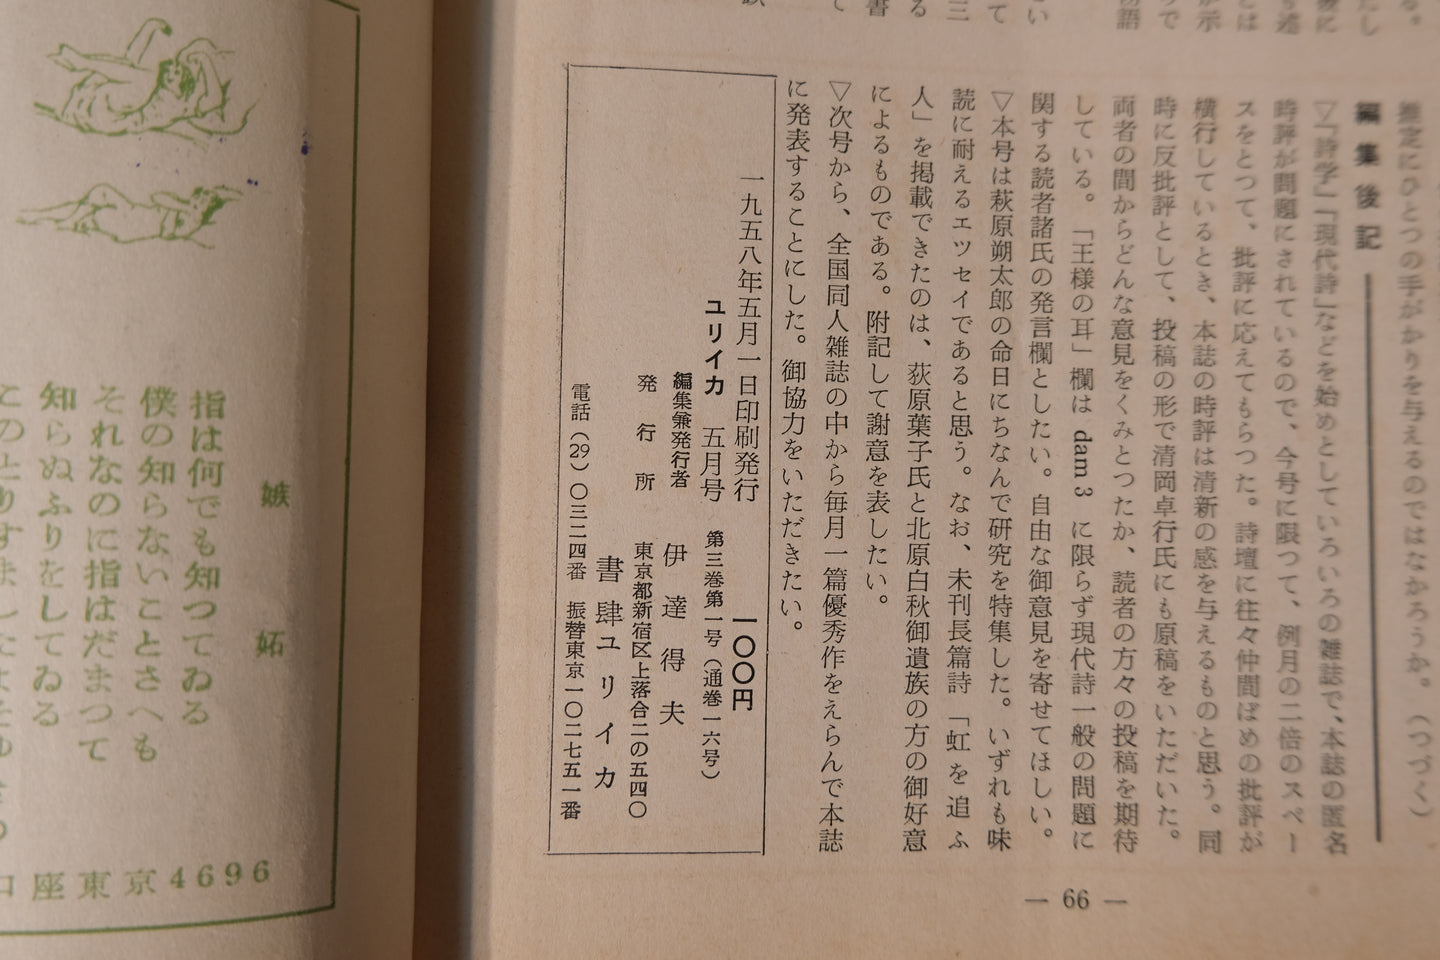 推定にひとつの手がかりを与えるのではなかろうか。（つづく）
編集後記
▽『詩学』『現代詩』などを始めとしていろいろの雑誌で、本誌の匿名
時評が問題にされているので、今号に限つて、例月の二倍のスペー
スをとつて、批評に応えてもらつた。詩壇に往々仲間ぼめの批評が
横行しているとき、本誌の時評は清新の感を与えるものと思う。同
時に反批評として、投稿の形で清岡卓行氏にも原稿をいただいた。
両者の間からどんな意見をくみとつたか、読者の方々の投稿を期待
している。「王様の耳」欄は dam 3 に限らず現代詩一般の問題に
関する読者諸氏の発言欄としたい。自由な御意見を寄せてほしい。
▽本号は萩原朔太郎の命日にちなんで研究を特集した。いずれも味
読に耐えるエツセイであると思う。なお、未刊長篇詩「虹を追ふ
人」を掲載できたのは、萩原葉子氏と北原白秋御遺族の方の御好意
によるものである。附記して謝意を表したい。
▽次号から、全国同人雑誌の中から毎月一篇優秀作をえらんで本誌
に発表することにした。御協力をいただきたい。
一九五八年五月一日印刷発行 一〇〇円
ユリイカ 五月号 第三巻第一号（通巻一六号）
編集兼発行者 伊達得夫
発行所 東京都新宿区上落合二の五四〇
書肆ユリイカ
電話（29）〇三二四番 振替東京一〇二七五一番
— 66 —
嫉妬
指は何でも知つてゐる
僕の知らないことさへも
それなのに指はだまつて
知らぬふりをしてゐる
口座東京4696